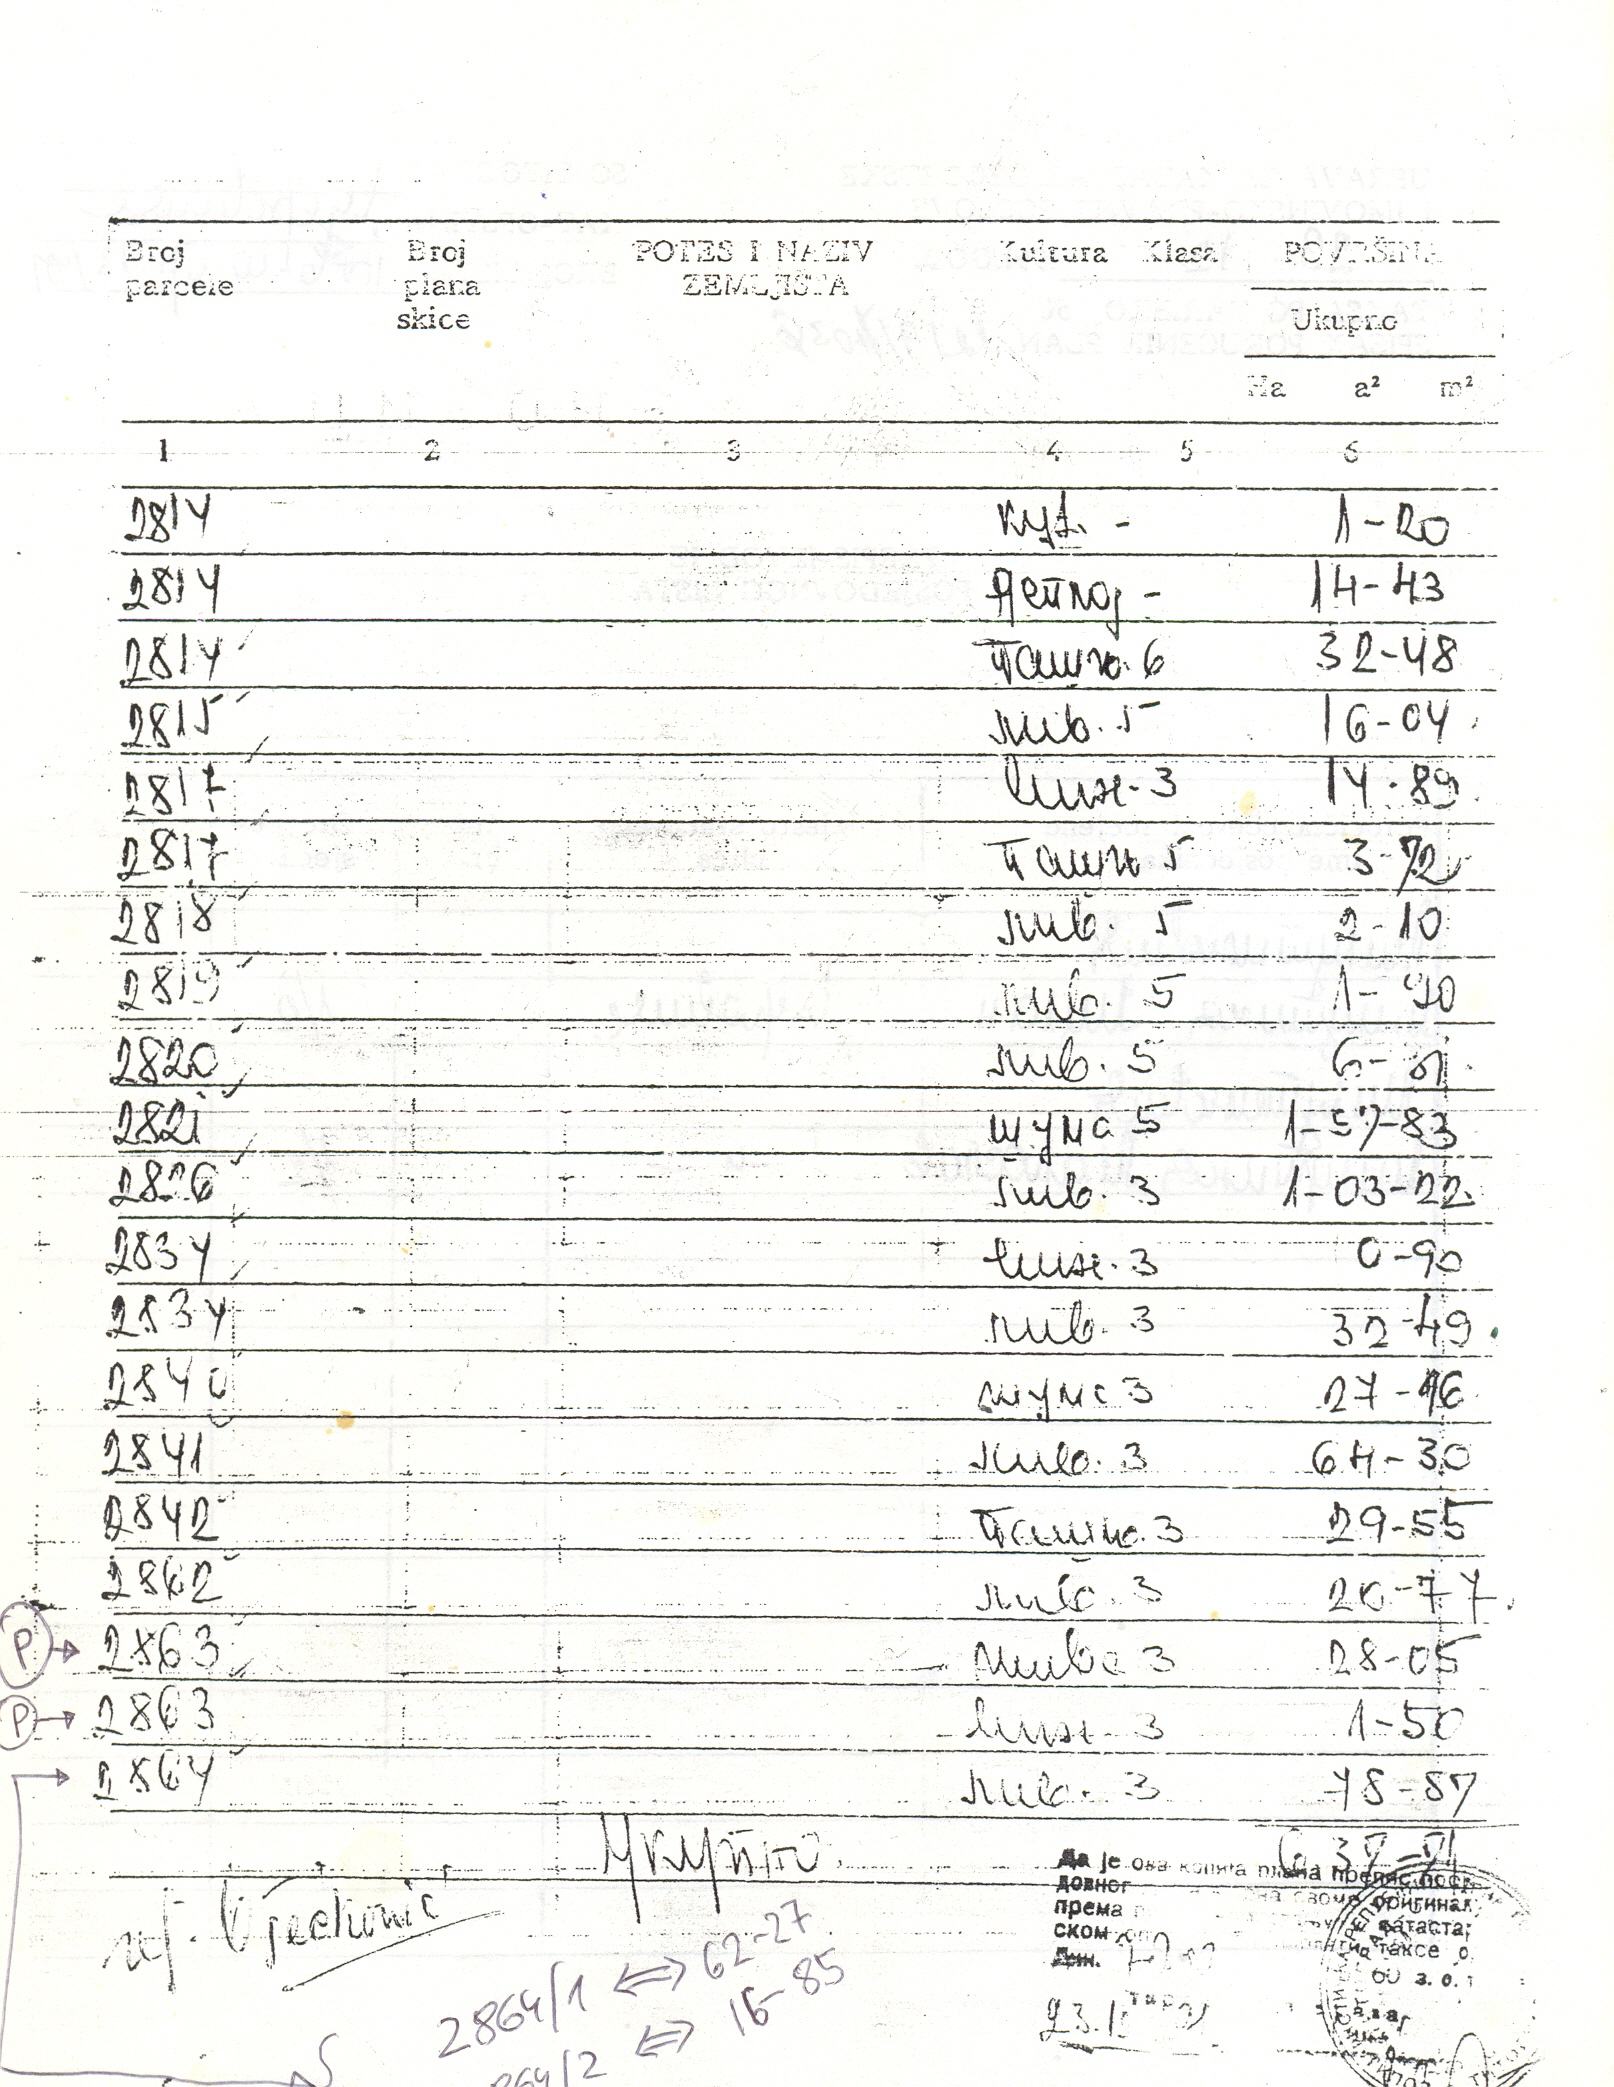 Broj parcele Broj plana skice POTES I NAZIV ZEMLJIŠTA Kultura Klasa POVRŠINA
Ukupno
Ha a² m²
1 2 3 4 5 6
2814 кућ. - 1-20
2814 14-43
2814 пашњ. 6 32-48
2815 лив. 5 16-04
2817 3 14-89
2817 пашњ 5 3-72
2818 лив. 5 2-10
2819 лив. 5 1-90
2820 лив. 5
2821 шума 5 1-57-83
2826 лив. 3 1-03-22
2834 3 0-90
2834 лив. 3 32-49
2840 шума 3
2841 лив. 3 64-30
2842 пашњ. 3 29-55
2862 лив. 3 20-77
P → 2863 њива 3 28-05
P → 2863 3 1-50
→ 2864 лив. 3 78-87
Укупно
Да је ова копија плана препис
довног
према оригинал
ском катаста
Дин. таксе
60 з. о.
2864/1 ⇔ 62-27
864/2 ⇔ 16-85